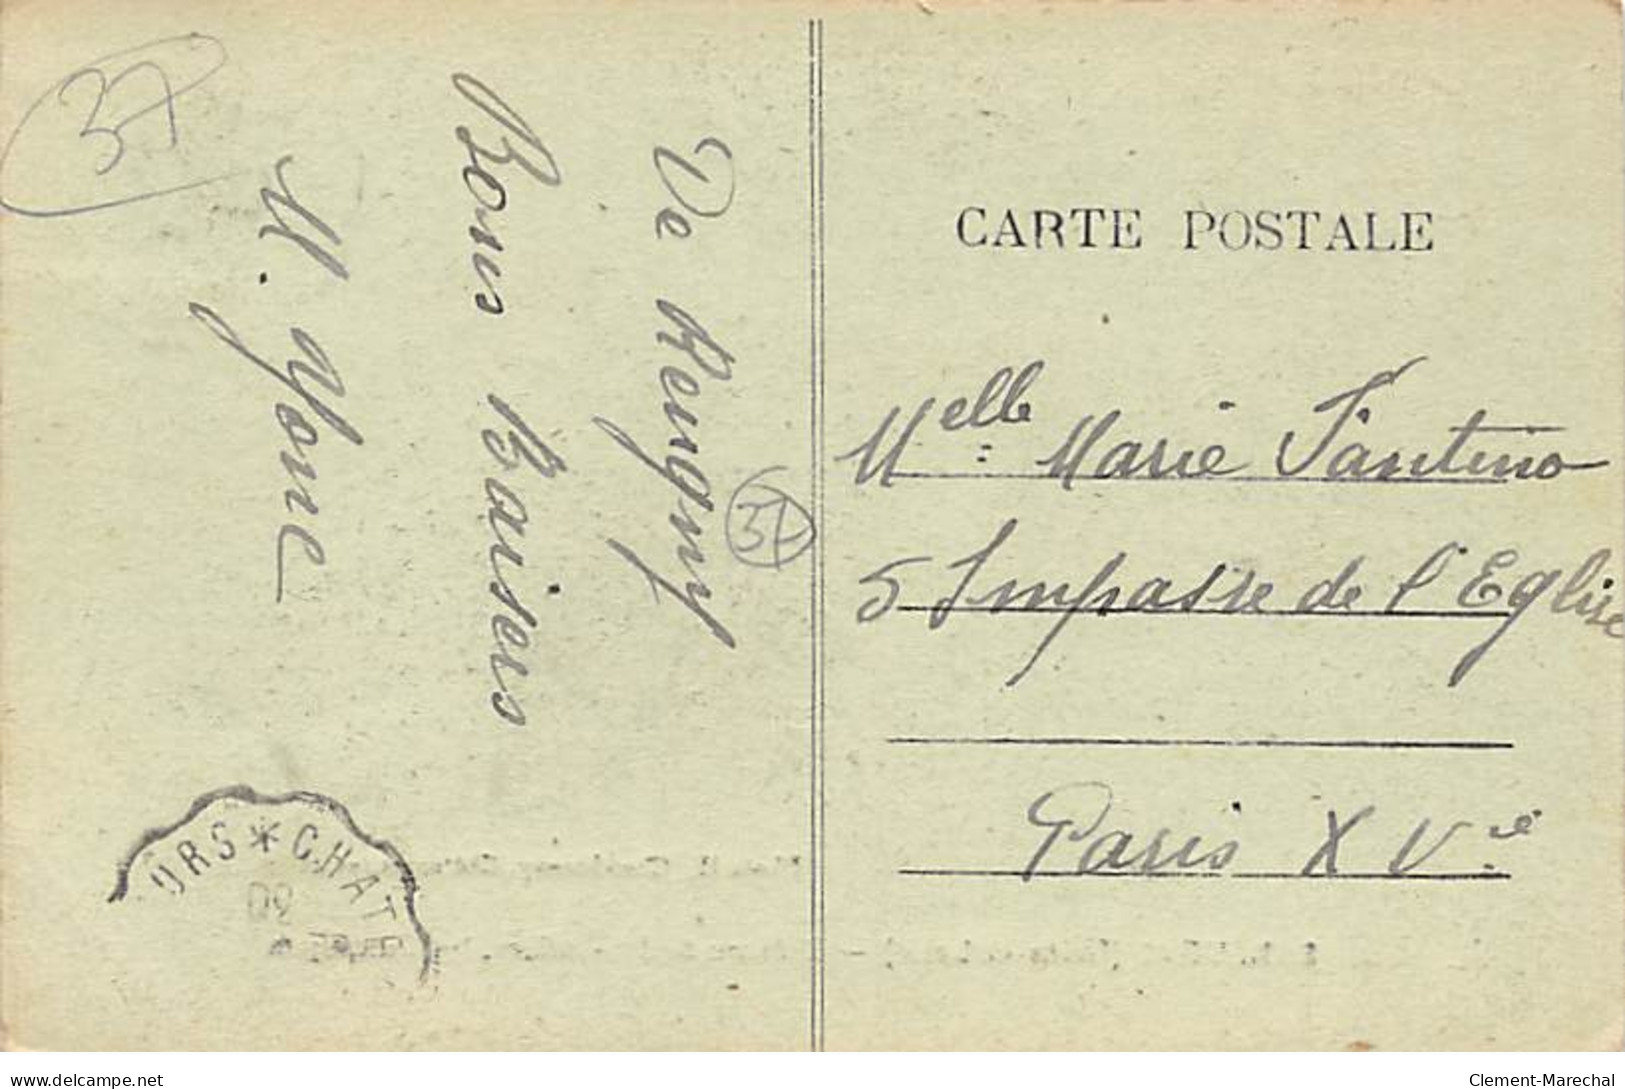 37
De Reugny
Bons Baisers
M. Yone
37
CARTE POSTALE
Melle Marie Fantino
5 Impasse de l'Eglise
Paris XVe
URS * CHAT
delcampe.net
Clement-Marechal